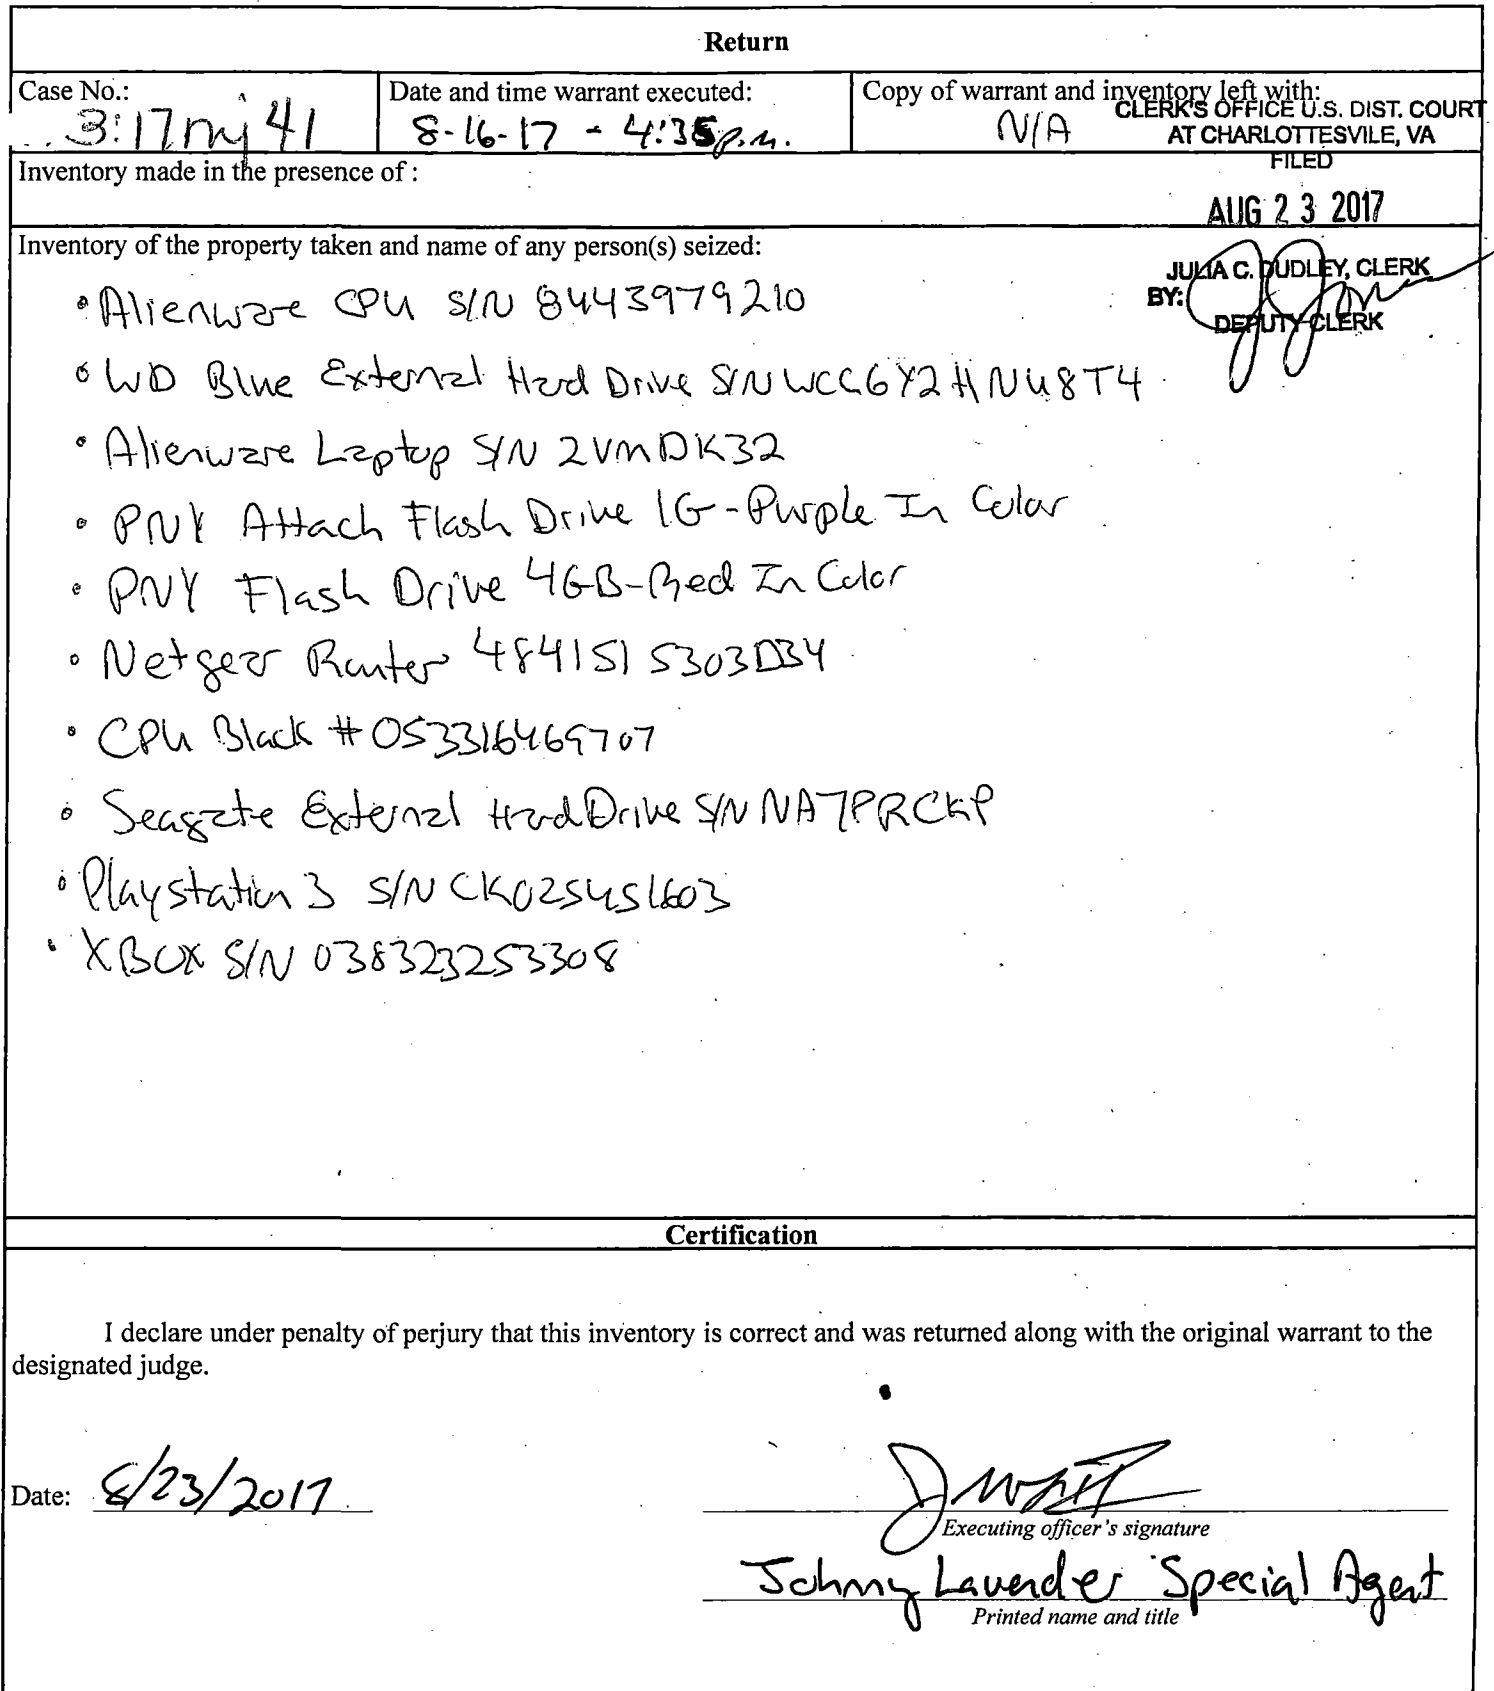 Return
Case No.:
3:17mj41
Date and time warrant executed:
8-16-17 - 4:35p.m.
Copy of warrant and inventory left with:
N/A
CLERK'S OFFICE U.S. DIST. COURT
AT CHARLOTTESVILE, VA
FILED
Inventory made in the presence of :
AUG 23 2017
Inventory of the property taken and name of any person(s) seized:
JULIA C. DUDLEY, CLERK
BY:
DEPUTY CLERK
• Alienware CPU S/N 8443979210
• WD Blue External Hard Drive S/N WCC6Y2HNU8T4
• Alienware Laptop S/N 2VMDK32
• PNY Attach Flash Drive 1G-Purple In Color
• PNY Flash Drive 4GB-Red In Color
• Netgear Router 4841515303D34
• CPU Black # 053316469707
• Seagate External Hard Drive S/N NA7PRCKP
• Playstation 3 S/N CK025451603
• XBOX S/N 038323253308
Certification
I declare under penalty of perjury that this inventory is correct and was returned along with the original warrant to the
designated judge.
Date: 8/23/2017
Executing officer's signature
Johnny Lavender Special Agent
Printed name and title